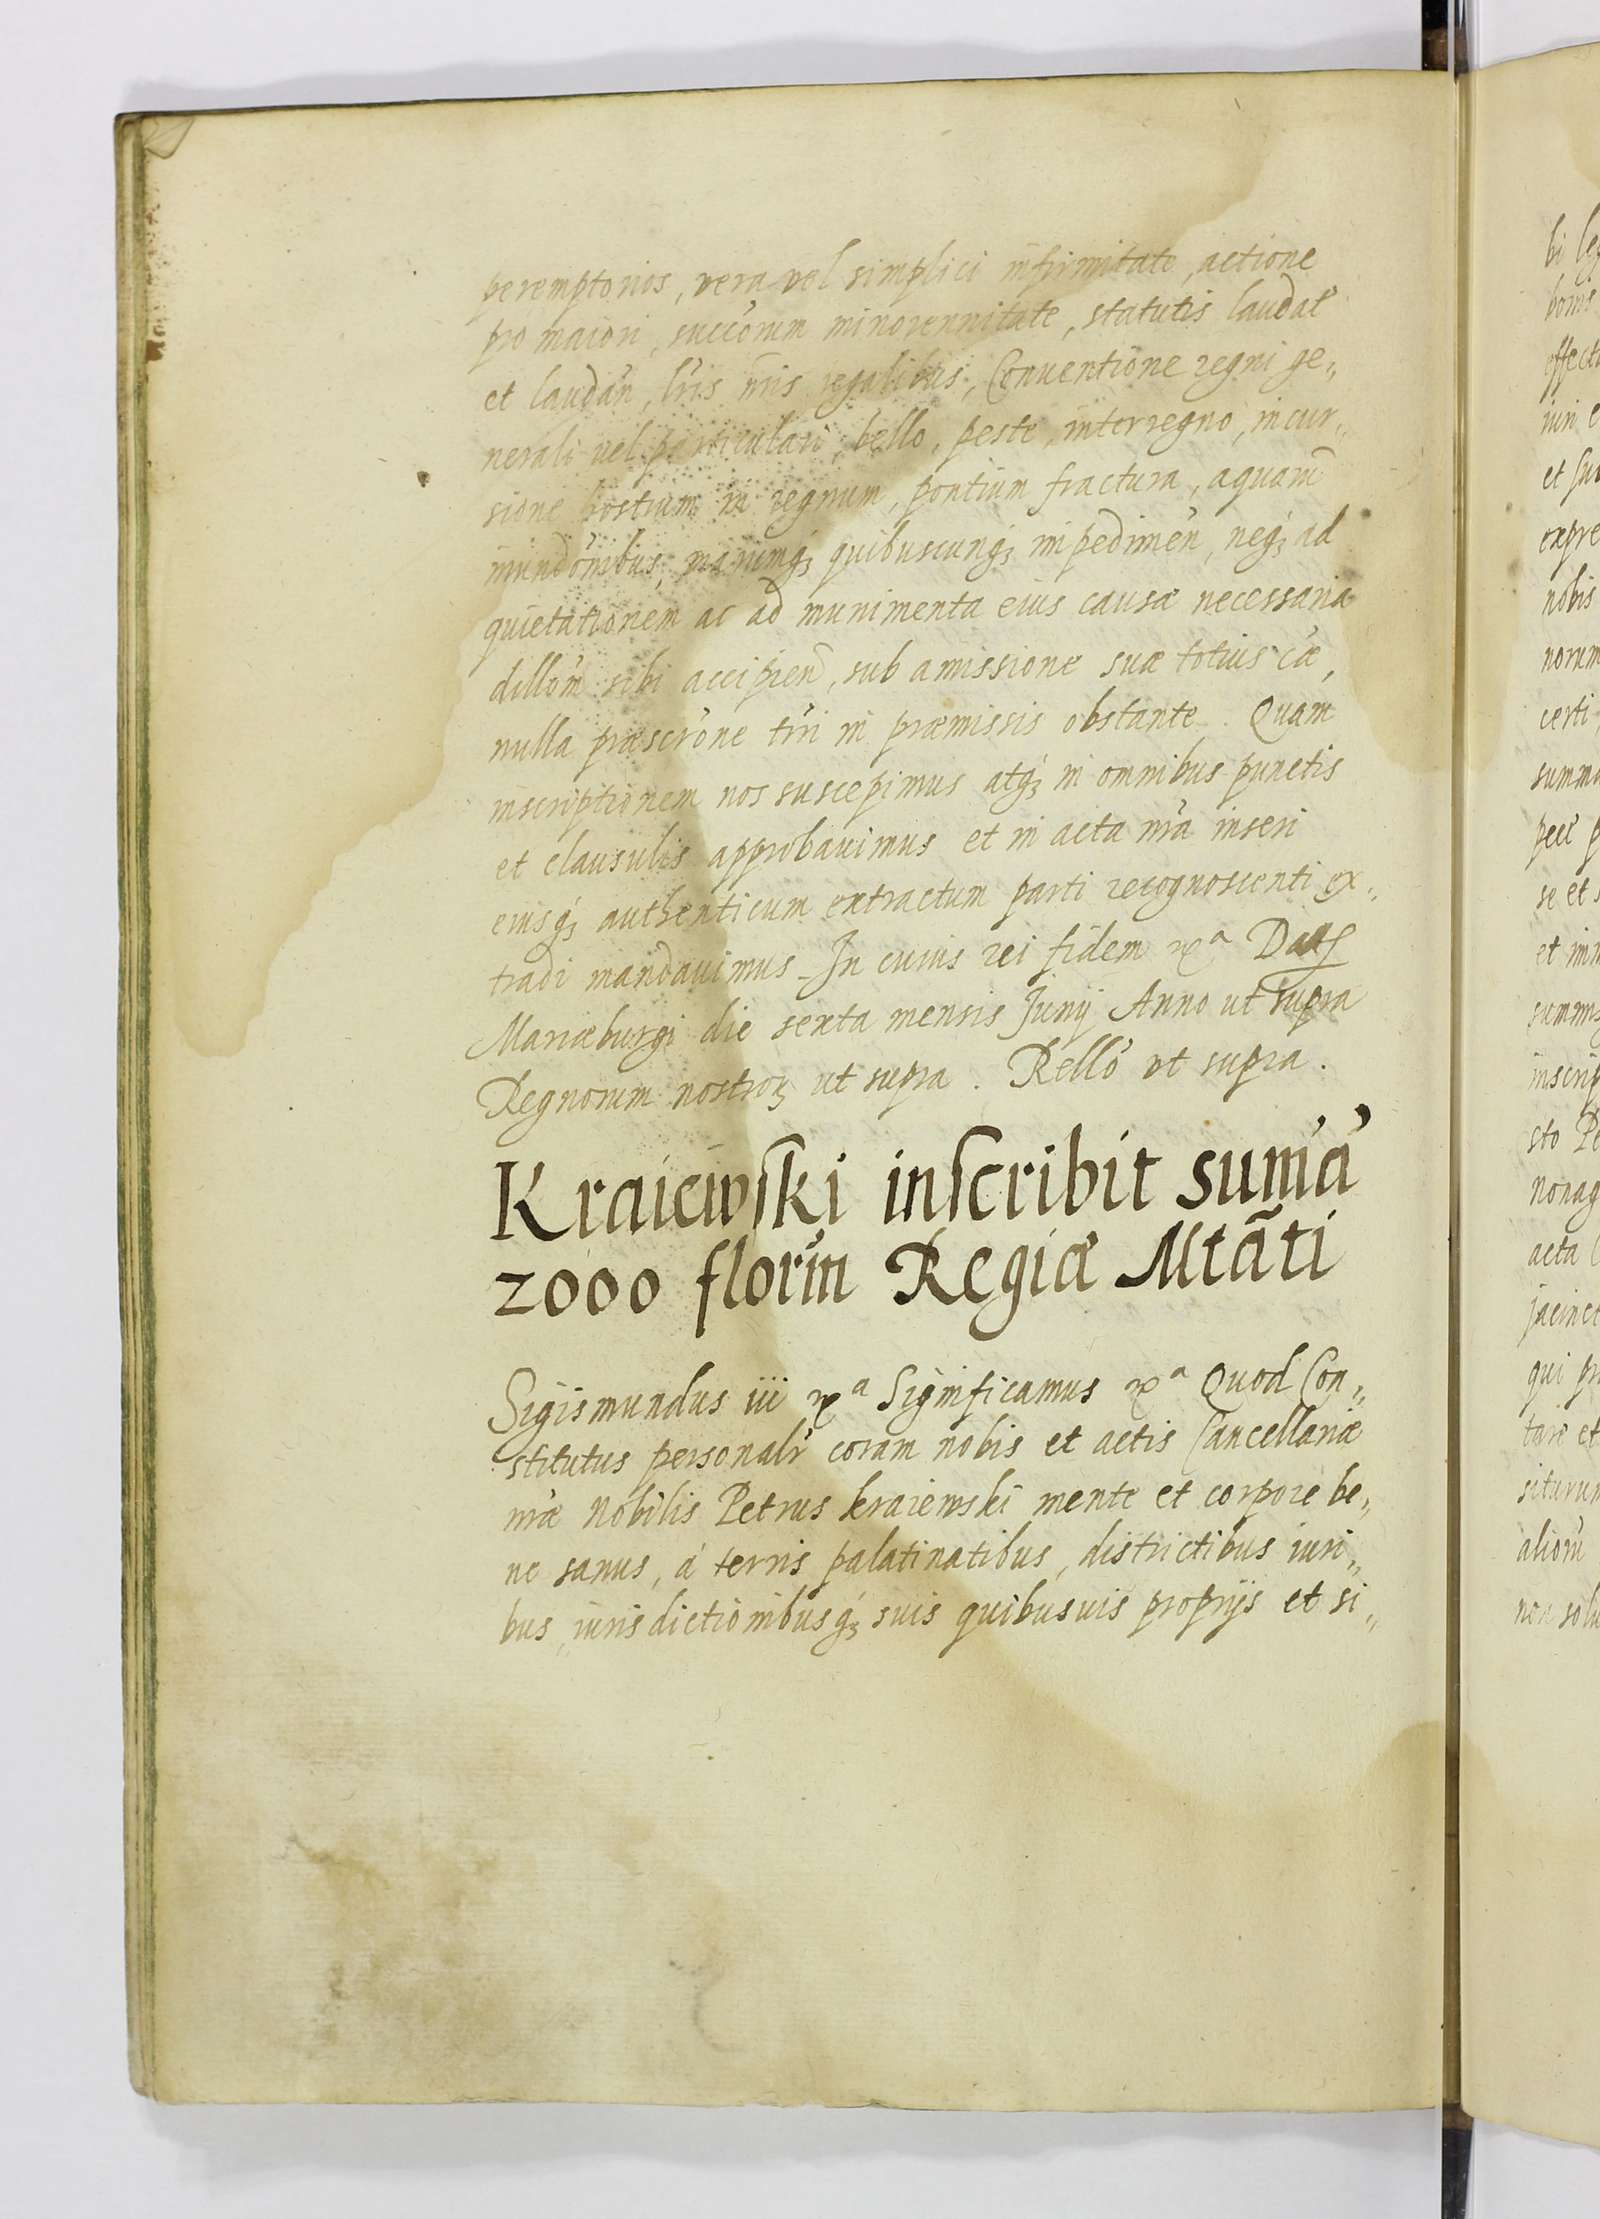 peremptorios, vera vel simplici infirmitate, actione
pro maiori, succorum minorennitate, statutis laudat'
et laudan', l'ris n'ris regalibus, Conuentione regni ge„
nerali vel particulari, bello, peste, interregno, incur„
sione hostium in regnum, pontium fractura, aquarū
inundo'nibus, ma numq; quibuscunq; impedimen', neq; ad
quietationem ac ad munimenta eius causæ necessaria
dillo'm sibi accipien', sub amissione suæ totius c'æ,
nulla præscr'one t'rri in præmissis obstante. Quam
inscriptionem nos suscepimus atq; in omnibus punctis
et clausulis approbauimus et in acta n'ra inseri
eiusq; authenticum extractum parti recognoscenti ex„
tradi mandauimus. In cuius rei fidem &ᵃ Dat
Mariæburgi die sexta mensis Junij Anno ut supra
Regnorum nostroꝝ ut supra. Rello' ut supra.
Kraiewski inscribit sum'a'
2000 flor'in Regiæ Mtãti
Sigismundus iii &ᵃ Significamus &ᵃ Quod Con„
stitutus personalr' coram nobis et actis Cancellariæ
n'ræ Nobilis Petrus kraiewski mente et corpore be„
ne sanus, á terris palatinatibus, districtibus iuri„
bus, iurisdictionibusq; suis quibusuis proprijs et si„
bi
effectu
iuri
expre
nobis
norum
certi,
summa
se et s
inscrip
sto Pe
Nonag
acta
jacinct
qui
aliorū
non solu